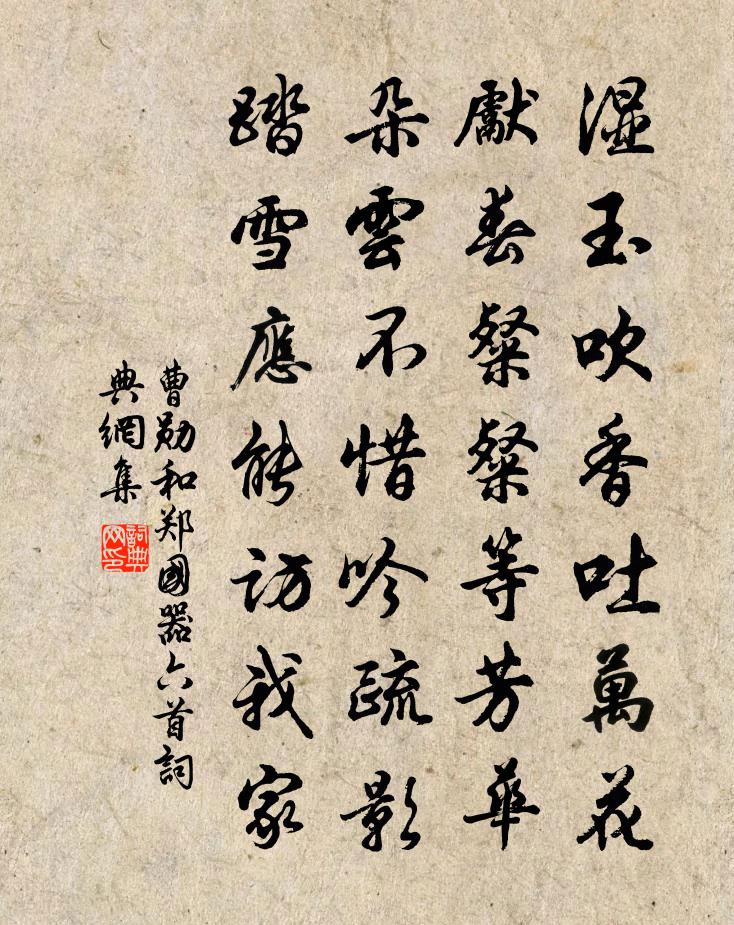 湿玉吹香吐萬花
獻春粲粲等芳華
朵雲不惜吟疏影
踏雪應能訪我家
曹勛和郑國器六首詞
典網集
詞典网印